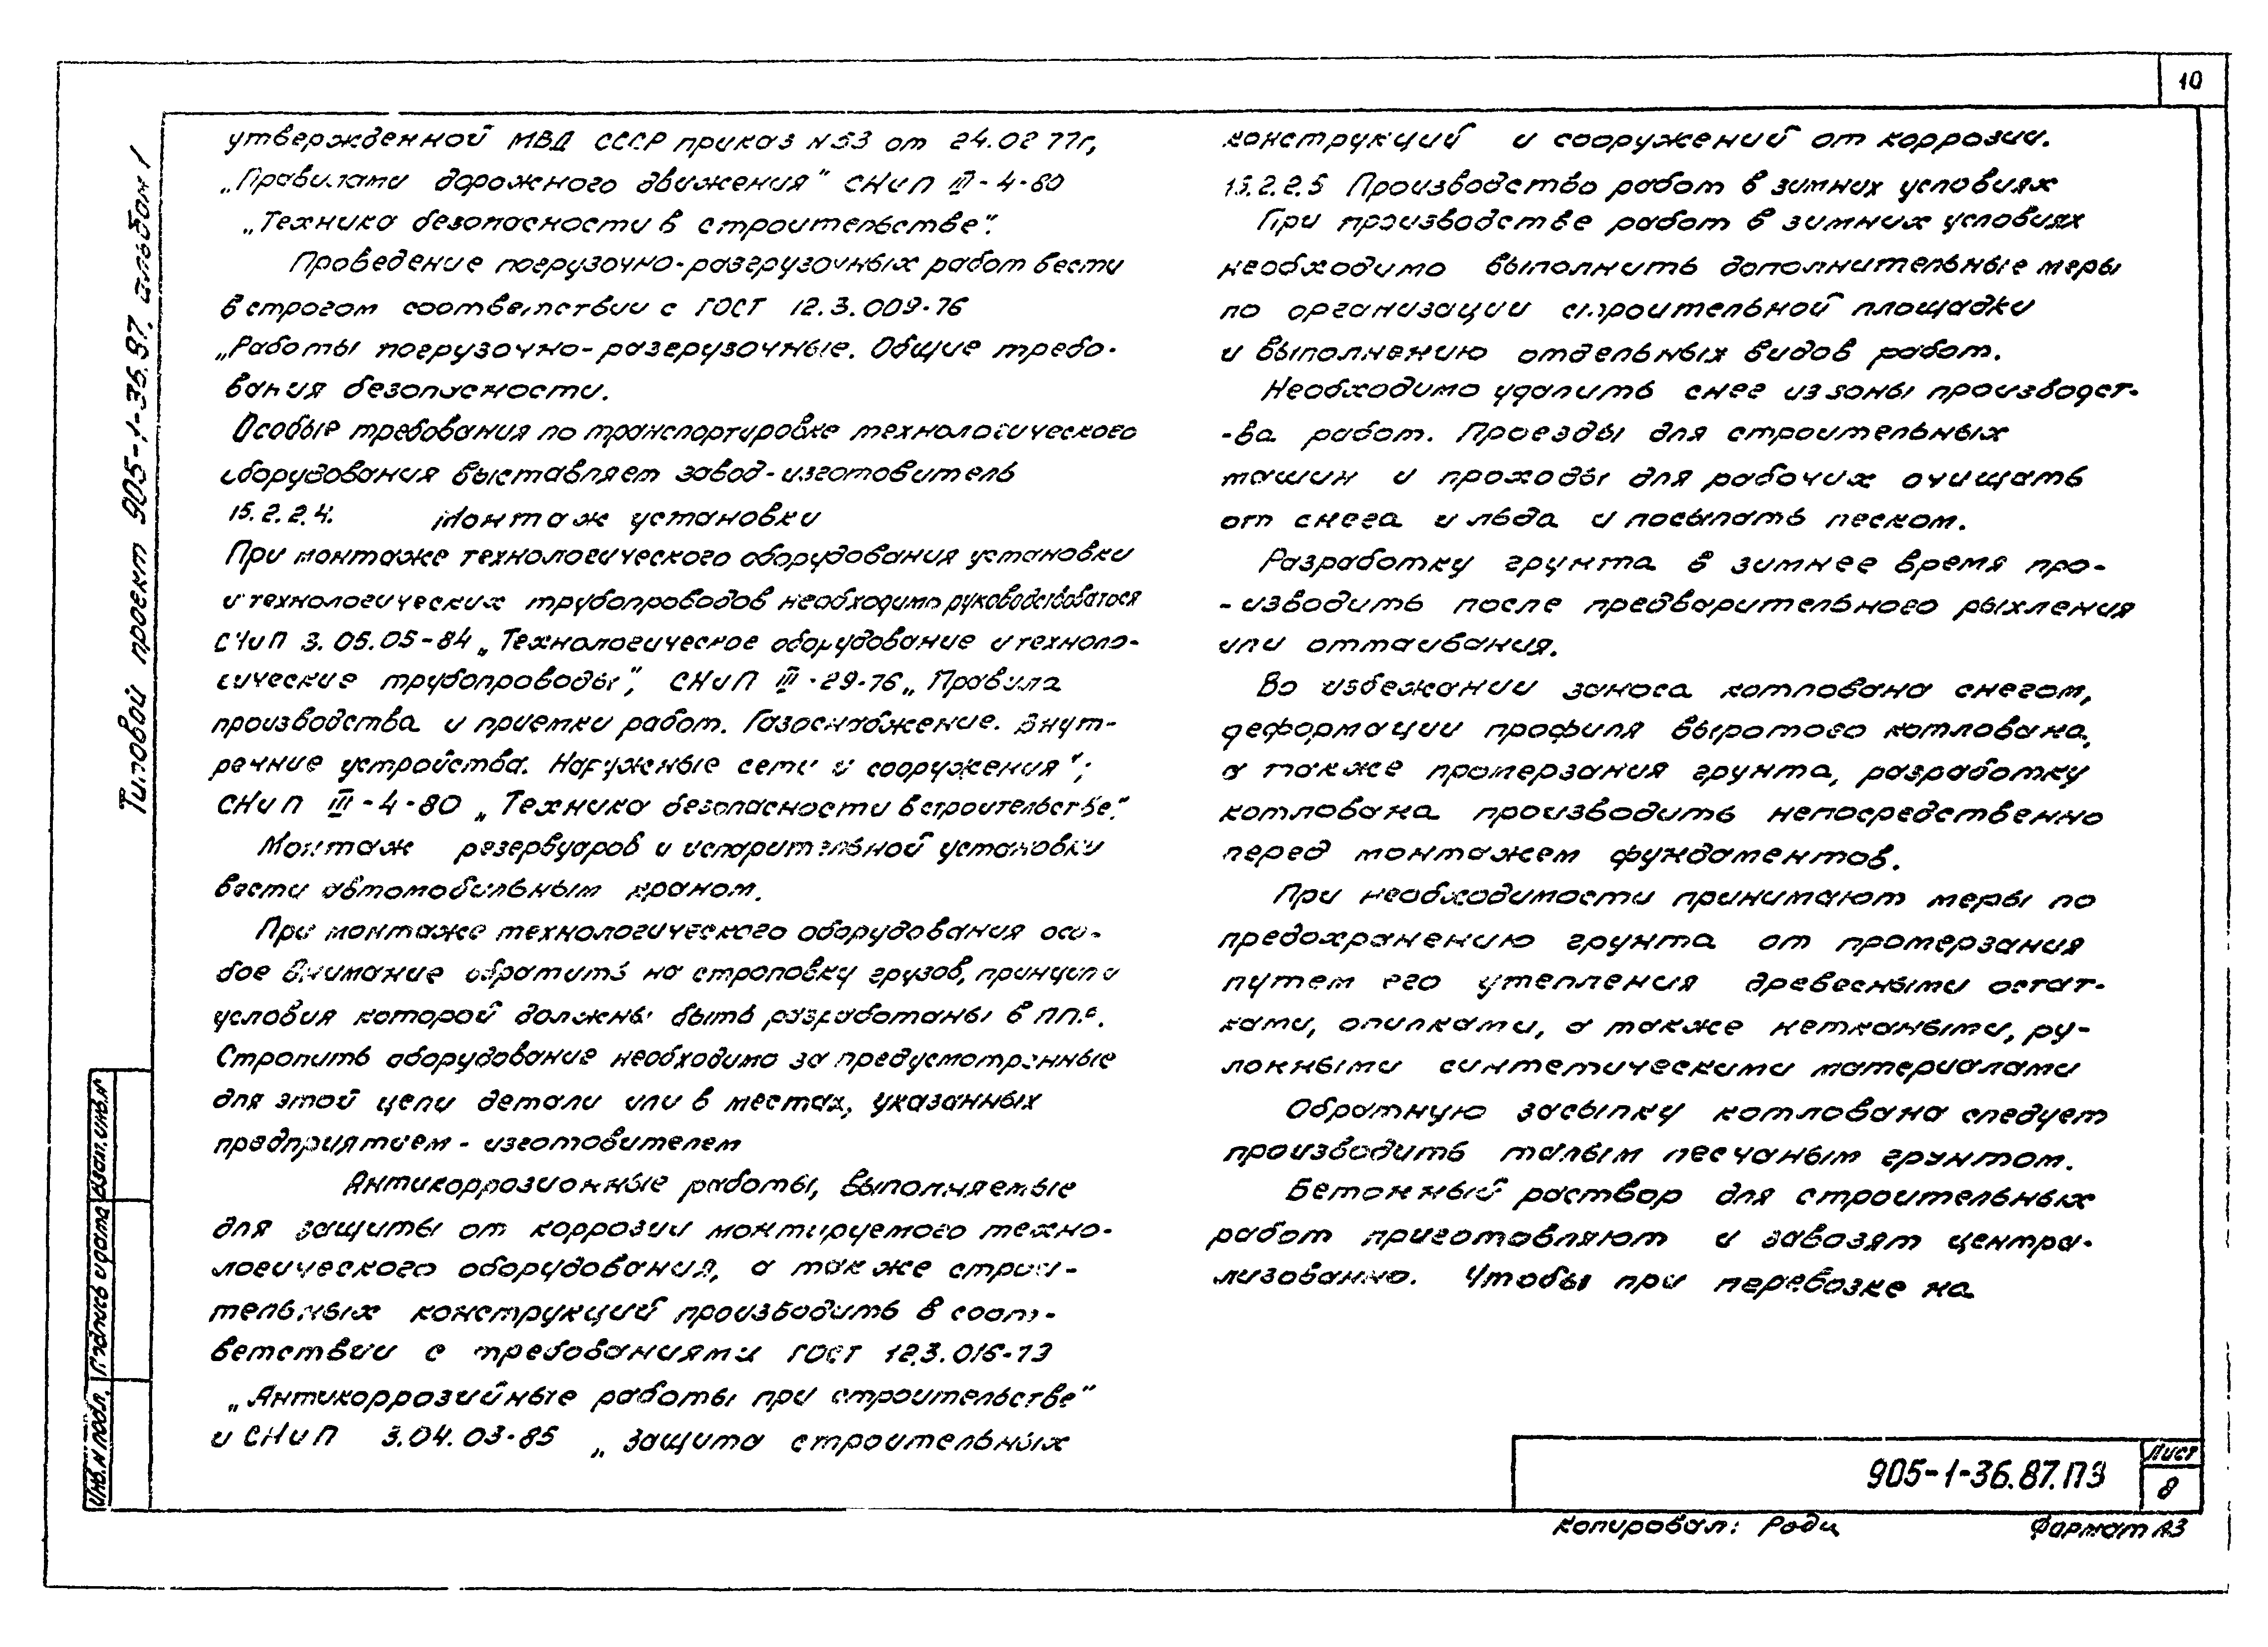 10
утвержденной МВД СССР приказ N53 от 24.02 77г,
„Правилами дорожного движения" СНиП III-4-80
„Техника безопасности в строительстве".
Проведение погрузочно-разгрузочных работ вести
в строгом соответствии с ГОСТ 12.3.009-76
„Работы погрузочно-разгрузочные. Общие требо-
вания безопасности.
Особые требования по транспортировке технологического
оборудования выставляет завод-изготовитель
15.2.2.4. Монтаж установки
При монтаже технологического оборудования установки
и технологических трубопроводов необходимо руководствоватося
СНиП 3.05.05-84 „Технологическое оборудование и техноло-
гические трубопроводы", СНиП III-29-76 „Правила
производства и приемки работ. Газоснабжение. Внут-
ренние устройства. Наружные сети и сооружения";
СНиП III-4-80 „Техника безопасности в строительстве."
Монтаж резервуаров и испарительной установки
вести автомобильным краном.
При монтаже технологического оборудования осо-
бое внимание обратить на строповку грузов, принцип и
условия которой должны быть разработаны в
Стропить оборудование необходимо за предусмотренные
для этой цели детали или в местах, указанных
предприятием-изготовителем
Антикоррозионные работы, выполняемые
для защиты от коррозии монтируемого техно-
логического оборудования, а также строи-
тельных конструкций производить в соот-
ветствии с требованиями ГОСТ
„Антикоррозийные работы при строительстве"
и СНиП 3.04.03-85 „Защита строительных
конструкций и сооружений от коррозии.
15.2.2.5 Производство работ в зимних условиях
При производстве работ в зимних условиях
необходимо выполнить дополнительные меры
по организации строительной площадки
и выполнению отдельных видов работ.
Необходимо удалить снег из зоны производст-
-ва работ. Проезды для строительных
машин и проходы для рабочих очищать
от снега и льда и посыпать песком.
Разработку грунта в зимнее время про-
-изводить после предварительного рыхления
или оттаивания.
Во избежании заноса котлована снегом,
деформации профиля вырытого котлована,
а также промерзания грунта, разработку
котлована производить непосредственно
перед монтажем фундаментов.
При необходимости принимают меры по
предохранению грунта от промерзания
путем его утепления древесными остат-
ками, опилками, а также неткаными, ру-
лонными синтетическими материалами
Обратную засыпку котлована следует
производить талым песчаным грунтом.
Бетонный раствор для строительных
работ приготовляют и завозят центра-
лизованно. Чтобы при перевозке на
Типовой проект 905-1-36.87. альбом 1
Инв.N подл. Подпись и дата Взам.инв.N
905-1-36.87.ПЗ
Лист
8
Копировал: Роди
Формат А3